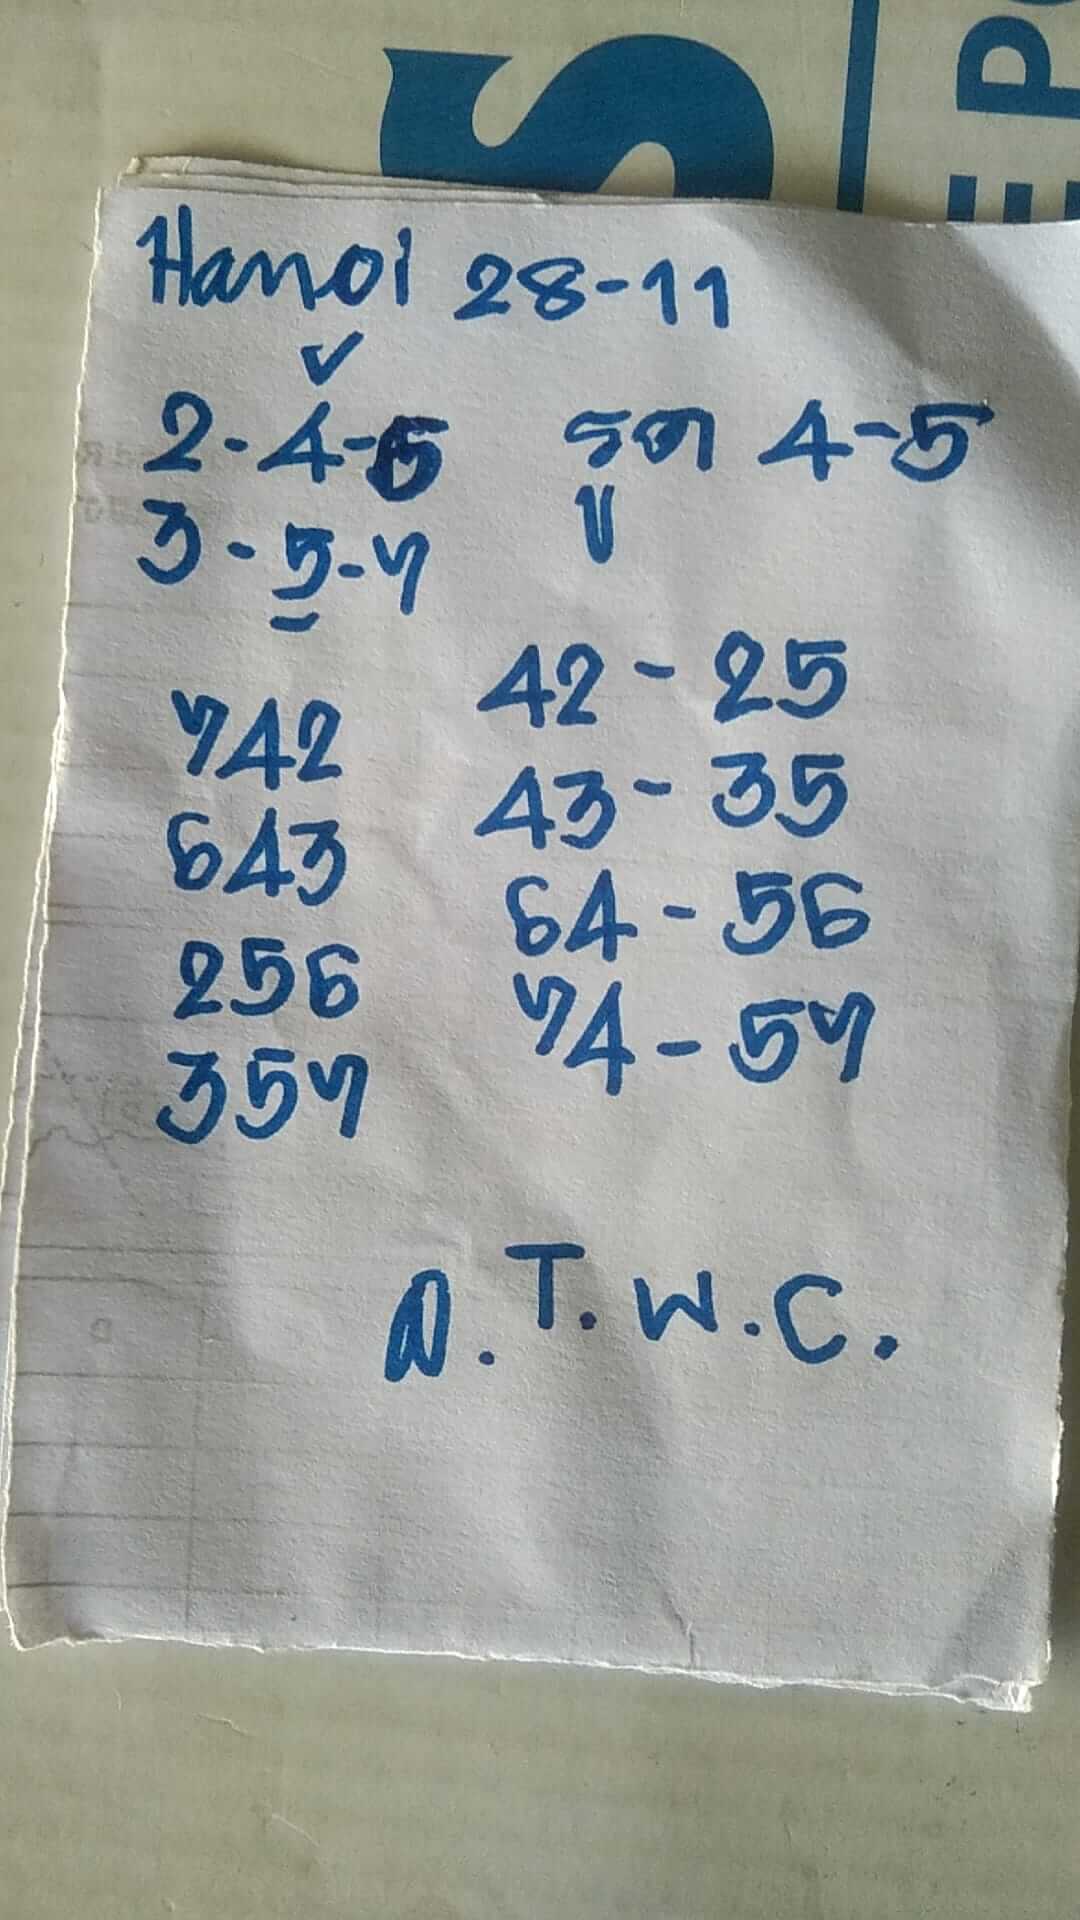 S
EP
Hanoi 28-11
✓
2-4-5 รูด 4-5
3-5-7
742
643
256
357
42-25
43-35
64-56
74-57
T.W.C.